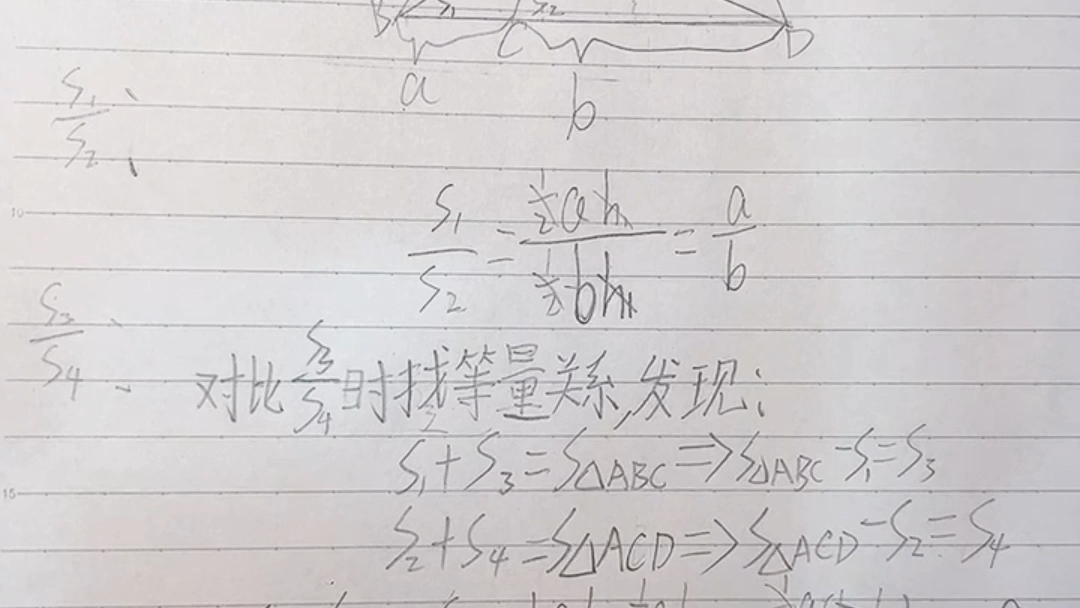 B S₁ S₂ D
C
a b
S₁/S₂、
S₁/S₂ = ½ah₁/½bh₁ = a/b
S₃/S₄、
对比S₃/S₄时找等量关系,发现:
S₁+S₃=S△ABC⇒S△ABC-S₁=S₃
S₂+S₄=S△ACD⇒S△ACD-S₂=S₄